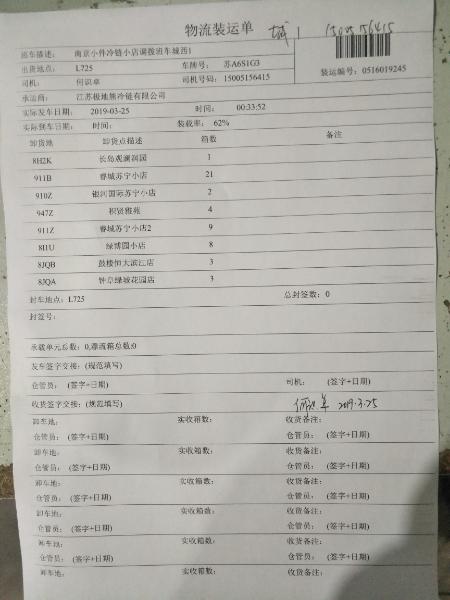 物流装运单 城1 15005156415
班车描述: 南京小件冷链小店调拨班车城西1
出货地点: L725 车牌号: 苏A6S1G3
司机: 何识卓 司机号码: 15005156415 装运编号: 0516019245
承运商: 江苏极地熊冷链有限公司
实际发车日期: 2019-03-25 时间: 00:33:52
实际到车日期: 时间: 装载率: 62%
卸货地 卸货点描述 箱数 备注
8H2K 长岛观澜润园 1
911B 睿城苏宁小店 21
910Z 银河国际苏宁小店 2
947Z 积贤雅苑 4
911Z 睿城苏宁小店2 9
8I1U 绿博园小店 8
8JQB 鼓楼恒大滨江店 3
8JQA 钟阜绿城花园店 3
封车地点: L725 总封签数: 0
封签号:
承载单元总数: 0,漂流箱总数:0
发车签字交接: (规范填写)
仓管员: (签字+日期) 司机: (签字+日期)
收货签字交接: (规范填写) 2019.3.25
卸车地: 实收箱数: 收货备注:
仓管员: (签字+日期) 仓管员: (签字+日期)
卸车地: 实收箱数: 收货备注:
仓管员: (签字+日期) 仓管员: (签字+日期)
卸车地: 实收箱数: 收货备注:
仓管员: (签字+日期) 仓管员: (签字+日期)
卸车地: 实收箱数: 收货备注:
仓管员: (签字+日期) 仓管员: (签字+日期)
卸车地: 实收箱数: 收货备注:
仓管员: (签字+日期) 仓管员: (签字+日期)
卸车地: 实收箱数: 收货备注: